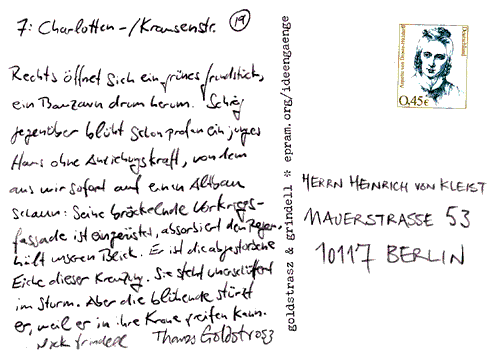 7: Charlotten-/Krausenstr. 19
Rechts öffnet sich ein grünes Grundstück,
ein Bauzaun drum herum. Schräg
gegenüber blüht schon profan ein junges
Haus ohne Anziehungskraft, von dem
aus wir sofort auf einen Altbau
schaun: Seine bröckelnde Vorkriegs-
fassade ist eingerüstet, absorbiert den Regen,
hält unseren Blick. Er ist die abgestorbene
Eiche dieser Kreuzung. Sie steht unerschüttert
im Sturm. Aber die blühende stürzt
er, weil er in ihre Krone greifen kann.
Nick Grindell Thomas Goldstrasz
goldstrasz & grindell * epram.org/ideengaenge
Deutschland
Annette von Droste-Hülshoff
0,45€
HERRN HEINRICH VON KLEIST
MAUERSTRASSE 53
10117 BERLIN